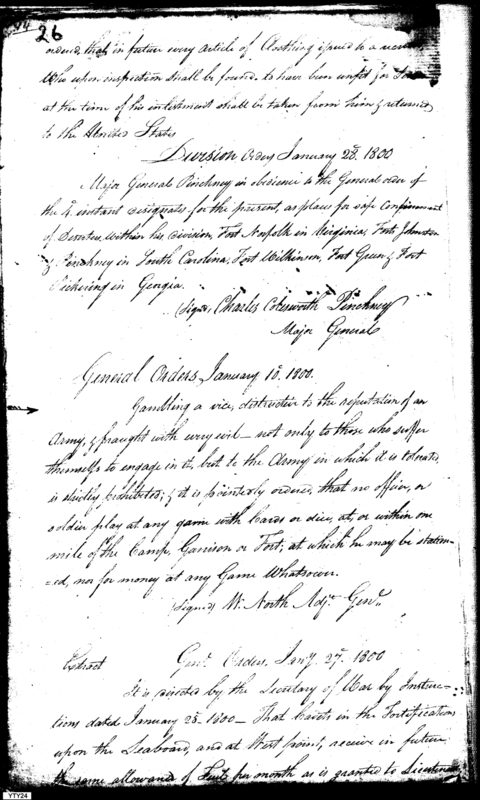 26
ordered, that in future every article of Cloathing issued to a
Who upon inspection shall be found to have been unfit for
at the time of his inlistment shall be taken from him & returned
to the United States
Division Orders January 28. 1800
Major General Pinckney in obedience to the General order of
the 4 instant designates for the present, as places for safe Confinement
of Deserters, within his division, Fort Norfolk in Virginia, Forts Johnston
& Pinckney in South Carolina, Fort Wilkinson, Fort Green & Fort
Pickering in Georgia.
Signed Charles Cotesworth Pinckney
Major General
General Orders, January 10. 1800.
Gambling a vice, destructive to the reputation of an
Army, & fraught with every evil - not only to those who suffer
themselfs to engage in it, but to the Army in which it is tolerated,
is strictly prohibited; & it is pointedly ordered, that no officer, or
soldier play at any game with Cards or dice, at, or within one
mile of the Camp, Garrison or Fort; at which he may be station-
=ed, nor for money at any Game Whatsoever.
(signed) W. North Adjt. Genl.
Extract Genl. Orders. Jany. 27. 1800
It is directed by the Secretary of War by Instruc-
tions dated January 25. 1800 - That Cadets in the Fortifications
upon the Seaboard, and at West point, receive in future
the same allowance of per month as is granted to Lieutenants
YTY24